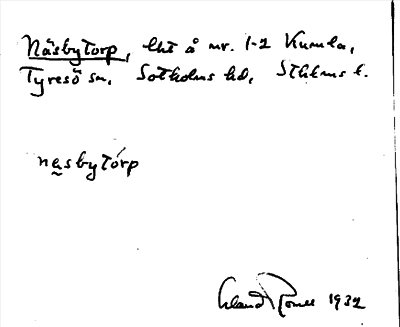 Näsbytorp, lht å nr. 1-2 Kumla,
Tyresö sn, Sotholms hd, Sthlms l.
nasbytórp
Erland Rosell 1932